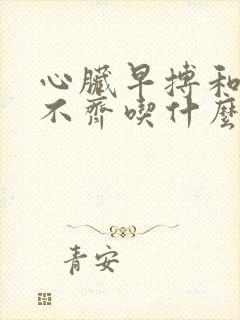 心臟早搏和
不齊喫什麼
青安